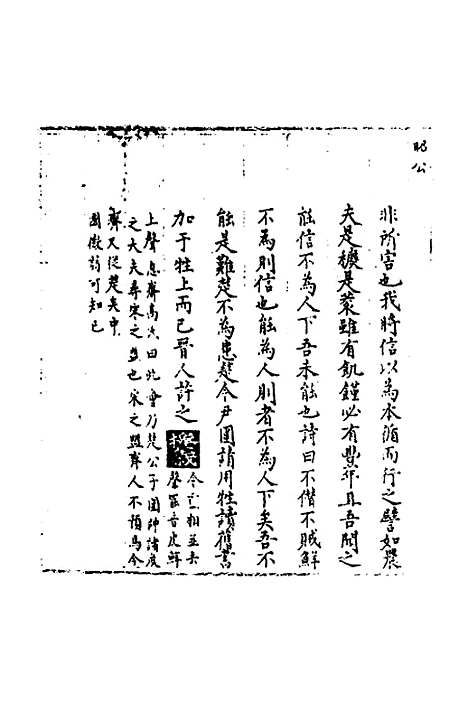 昭公
非所害也我將信以為本循而行之譬如農
夫是穮是蔉雖有飢饉必有豐年且吾聞之
能信不為人下吾未能也詩曰不僭不賊鮮
不為則信也能為人則者不為人下矣吾不
能是難楚不為患楚令尹圍請用牲讀舊書
加于牲上而已晉人許之
令亡相並去
聲區音皮鮮
上聲息齊高氏曰此會乃楚公子圍帥諸侯
之大夫尋宋之盟也宋之盟齊人不預焉今
齊又從楚矣中
國微弱可知已